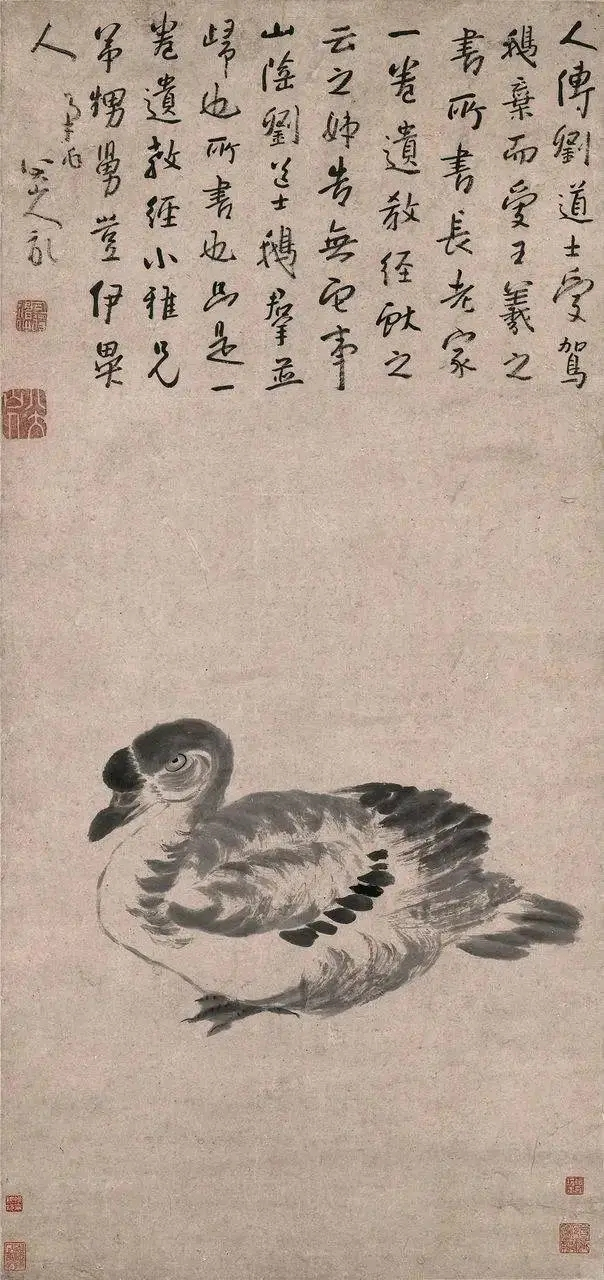 人傳劉道士愛駕
鵝棄而愛王羲之
書所書長老家
一卷遺教經獻之
云之姊告無它事
山陰劉道士鵝群並
歸也所書也只是一
卷遺教經小雅兄
弟甥舅豈伊異
人
八大山人